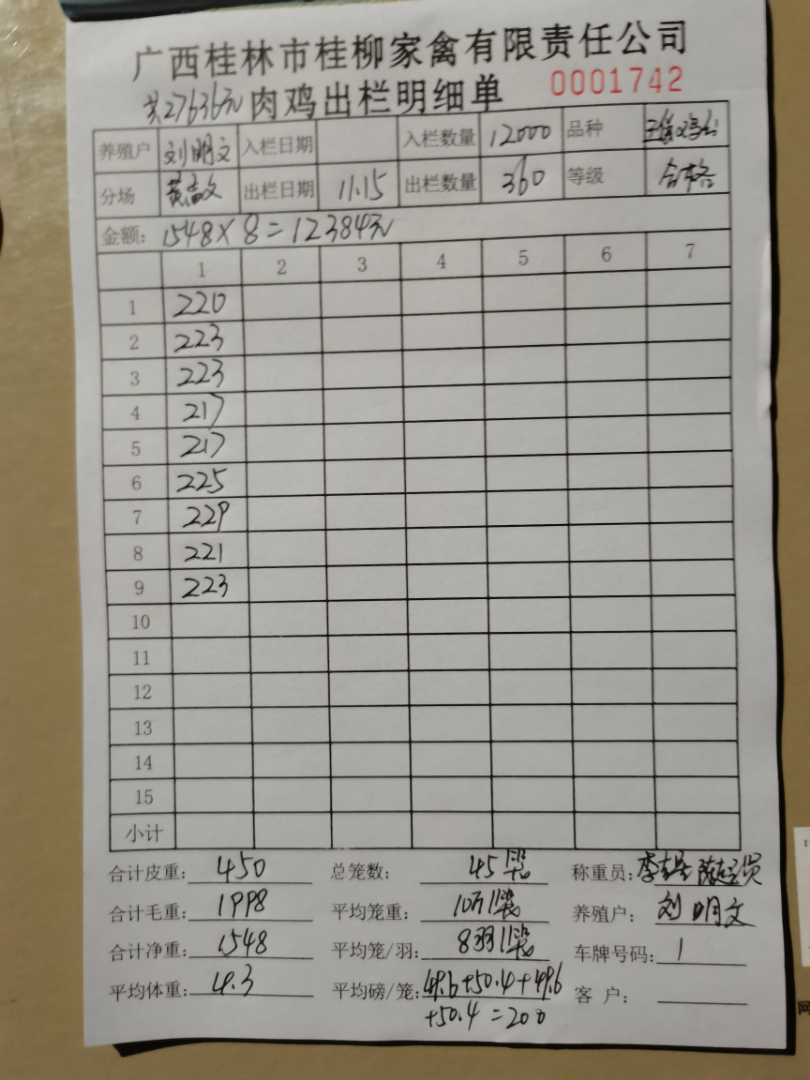 广西桂林市桂柳家禽有限责任公司
共27636元 肉鸡出栏明细单 0001742
养殖户 刘明文 入栏日期 入栏数量 12000 品种
分场 出栏日期 11.15 出栏数量 360 等级 合格
金额: 1548×8=12384元
1 2 3 4 5 6 7
1 220
2 223
3 223
4 217
5 217
6 225
7 229
8 221
9 223
10
11
12
13
14
15
小计
合计皮重: 450 总笼数: 45 称重员:
合计毛重: 1998 平均笼重: 10 养殖户: 刘明文
合计净重: 1548 平均笼/羽: 8羽/ 车牌号码: 1
平均体重: 4.3 平均磅/笼: 49.6+50.4+49.6 客户:
+50.4=200